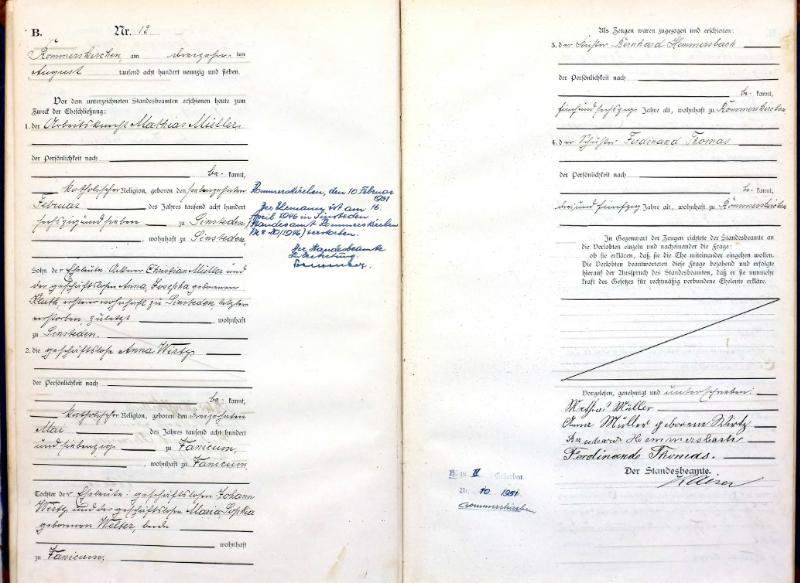 B.
Nr. 12
Rommerskirchen, am dreizehnten
August tausend acht hundert neunzig und sieben.
Vor dem unterzeichneten Standesbeamten erschienen heute zum
Zweck der Eheschließung:
1. der Arbeitsknecht Mathias Müller,
der Persönlichkeit nach
be kannt,
katholischer Religion, geboren den siebenzehnten
Februar des Jahres tausend acht hundert
sechszig und sieben zu Sinsteden
, wohnhaft zu Sinsteden
Sohn der Eheleute Ackerer Christian Müller und
der geschäftslosen Anna Josepha geborenen
wohnhaft zu Sinsteden, letztere
verstorben, zuletzt wohnhaft
zu Sinsteden.
2. die geschäftslose Anna Wertz
der Persönlichkeit nach
be kannt,
katholischer Religion, geboren den dreizehnten
Mai des Jahres tausend acht hundert
und siebenzig zu Vanicum
, wohnhaft zu Vanicum
Tochter der Eheleute geschäftslosen Johann
Wertz und der geschäftslosen Maria Sophia
geborenen Welter, beide
wohnhaft
zu Vanicum.
Rommerskirchen, den 10 Februar
1951
Der Ehemann ist am 16
April 1946 in Sinsteden
(Standesamt Rommerskirchen
Nr. 20/1946) verstorben.
Der Standesbeamte
In Vertretung
Als Zeugen waren zugezogen und erschienen:
3. der Küster Bernhard Hemmersbach
der Persönlichkeit nach
be kannt,
fünf und sechszig Jahre alt, wohnhaft zu Rommerskirchen
4. der Schuster Ferdinand Thomas
der Persönlichkeit nach
be kannt,
drei und fünfzig Jahre alt, wohnhaft zu Rommerskirchen
In Gegenwart der Zeugen richtete der Standesbeamte an
die Verlobten einzeln und nacheinander die Frage:
ob sie erklären, daß sie die Ehe miteinander eingehen wollen.
Die Verlobten beantworteten diese Frage bejahend und erfolgte
hierauf der Ausspruch des Standesbeamten, daß er sie nunmehr
kraft des Gesetzes für rechtmäßig verbundene Eheleute erkläre.
Vorgelesen, genehmigt und unterschrieben:
Mathias Müller
Anna Müller geborene Wertz
Bernhard Hemmersbach
Ferdinand Thomas.
Der Standesbeamte.
Nr. 10 1951
Rommerskirchen